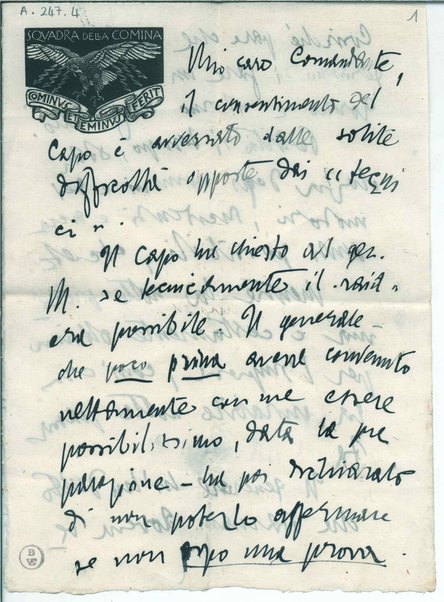 A. 247.4
1
SQVADRA DELLA COMINA
COMINVS ET EMINVS FERIT
Mio caro Comandante,
il consentimento del
Capo è avversato dalle solite
difficoltà opposte dai "tecni
ci".
Il Capo ha chiesto al gen.
M. se tecnicamente il raid
era possibile. Il generale
che poco prima aveva convenuto
nettamente con me essere
possibilissimo, data la pre
parazione - ha poi dichiarato
di non poterlo affermare
se non dopo una prova.